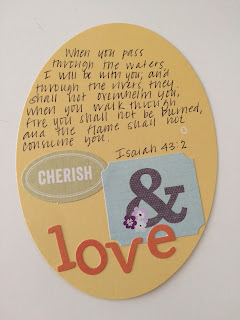 When you pass
through the waters,
I will be with you; and
through the rivers, they
shall not overwhelm you;
when you walk through
fire you shall not be burned,
and the flame shall not
consume you.
Isaiah 43:2
CHERISH
&
love